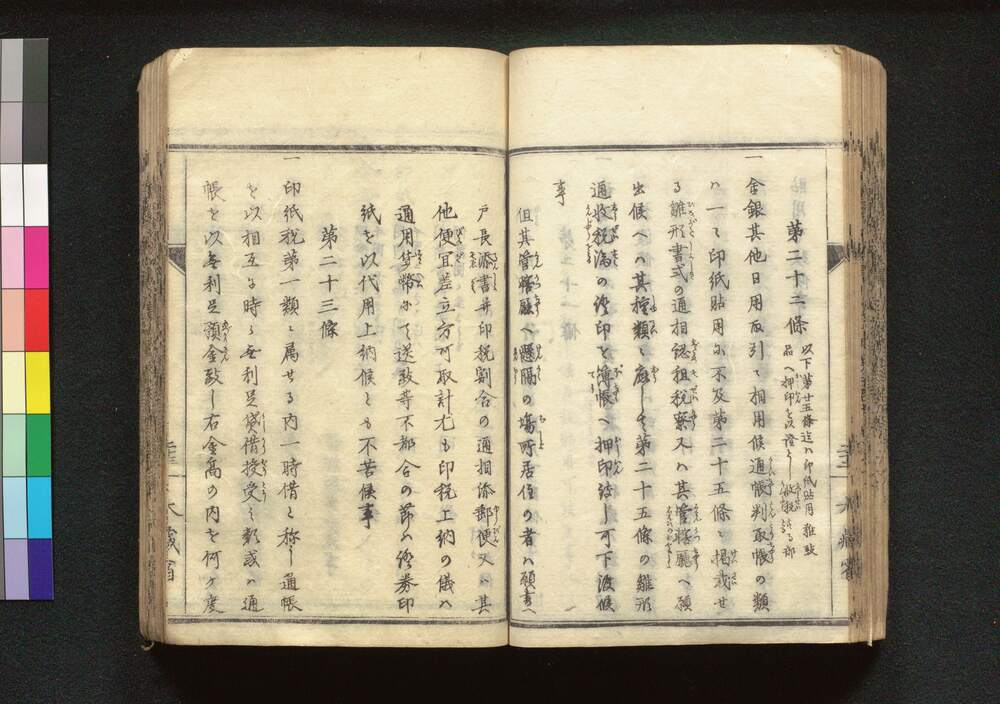 第二十二條 以下第廿五條迄ハ印紙貼用難致
品ヘ押印を以證とし
一 金銀其他日用取引ニ相用候通帳判取帳の類
ハ一々印紙貼用ニ不及第二十五條ニ掲載せ
る雛形書式の通相認租税寮又ハ其管轄廳ヘ願
出候ヘハ其種類ニ應し第二十五條の雛形
通收税済の證印を簿帳ヘ押印致し可下渡候
事
但其管轄廳ヘ懸隔の場所居住の者ハ願書ヘ
戸長添書并印税割合の通相添郵便又ハ其
他便宜差立方可取計尤も印税上納の儀ハ
通用貨幣にて送致等不都合の節ハ證券印
紙を以代用上納候とも不苦候事
第二十三條
一 印紙税第一類ニ属せる内一時借と称し通帳
を以相互に時々無利足貸借授受之類或ハ通
帳を以無利足預金致し右金高の内を何ヶ度
大藏省